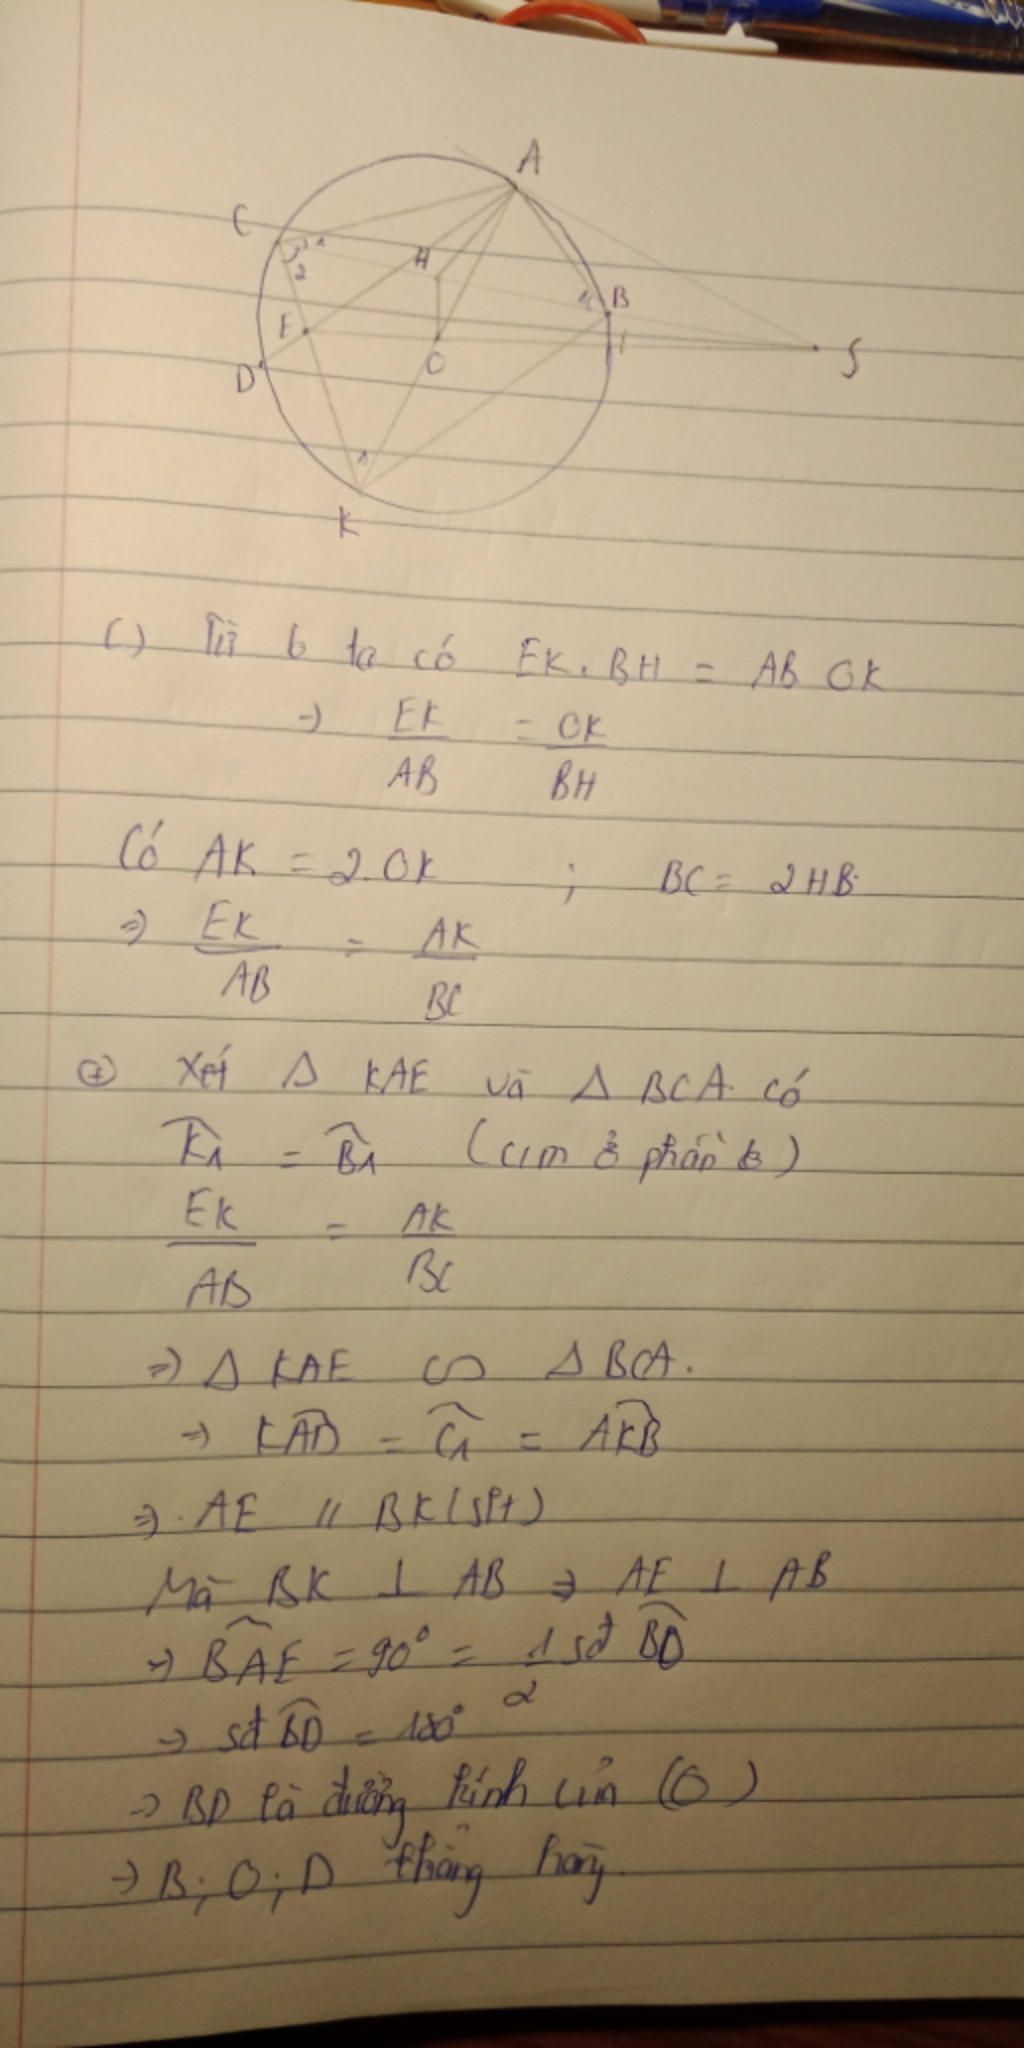 A
C
1
2
H
B
1
E
O
D
S
1
K
C) Từ b ta có EK . BH = AB OK
→ EK/AB = OK/BH
Có AK = 2.OK ; BC = 2HB
⇒ EK/AB = AK/BC
+ Xét Δ KAE và Δ BCA có
K̂1 = B̂1 (cm ở phần b)
EK/AB = AK/BC
⇒ Δ KAE ∽ Δ BCA.
→ KÂD = Ĉ1 = AK̂B
⇒ AE // BK (slt)
Mà BK ⊥ AB ⇒ AE ⊥ AB
→ BÂE = 90° = 1/2 sđ BD
→ sđ BD = 180°
→ BD là đường kính của (O)
→ B; O; D thẳng hàng.